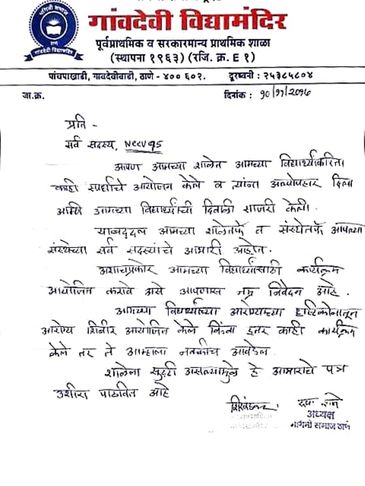 गांवदेवी विद्यामंदिर
पूर्वप्राथमिक व सरकारमान्य प्राथमिक शाळा
(स्थापना १९६३) (रजि. क्र. E १)
पांचपाखाडी, गावदेवीवाडी, ठाणे - ४०० ६०२. दूरध्वनी : २५३८५८०४
जा.क्र. दिनांक : १०/११/२०१५
प्रति -
सर्व सदस्य, NCCV95
आपण आमच्या शाळेत आमच्या विद्यार्थ्यांकरिता
स्पर्धांचे आयोजन केले व त्यांना अल्पोपहार दिला
आणि आमच्या विद्यार्थ्यांची दिवाळी साजरी केली.
याबद्दल आमच्या शाळेतर्फे व संस्थेतर्फे आपल्या
संस्थेच्या सर्व सदस्यांचे आभारी आहोत.
अशाचप्रकारे आमच्या विद्यार्थ्यांसाठी कार्यक्रम
आयोजित करावे असे आपणास नम्र निवेदन आहे.
आमच्या विद्यार्थ्यांच्या आरोग्याच्या दृष्टिकोनातून
आरोग्य शिबीर आयोजित केले किंवा इतर काही कार्यक्रम
केले तर ते आम्हाला नक्कीच आवडेल.
शाळेला सुट्टी असल्यामुळे हे आभाराचे पत्र
उशीरा पाठवित आहे
अध्यक्ष